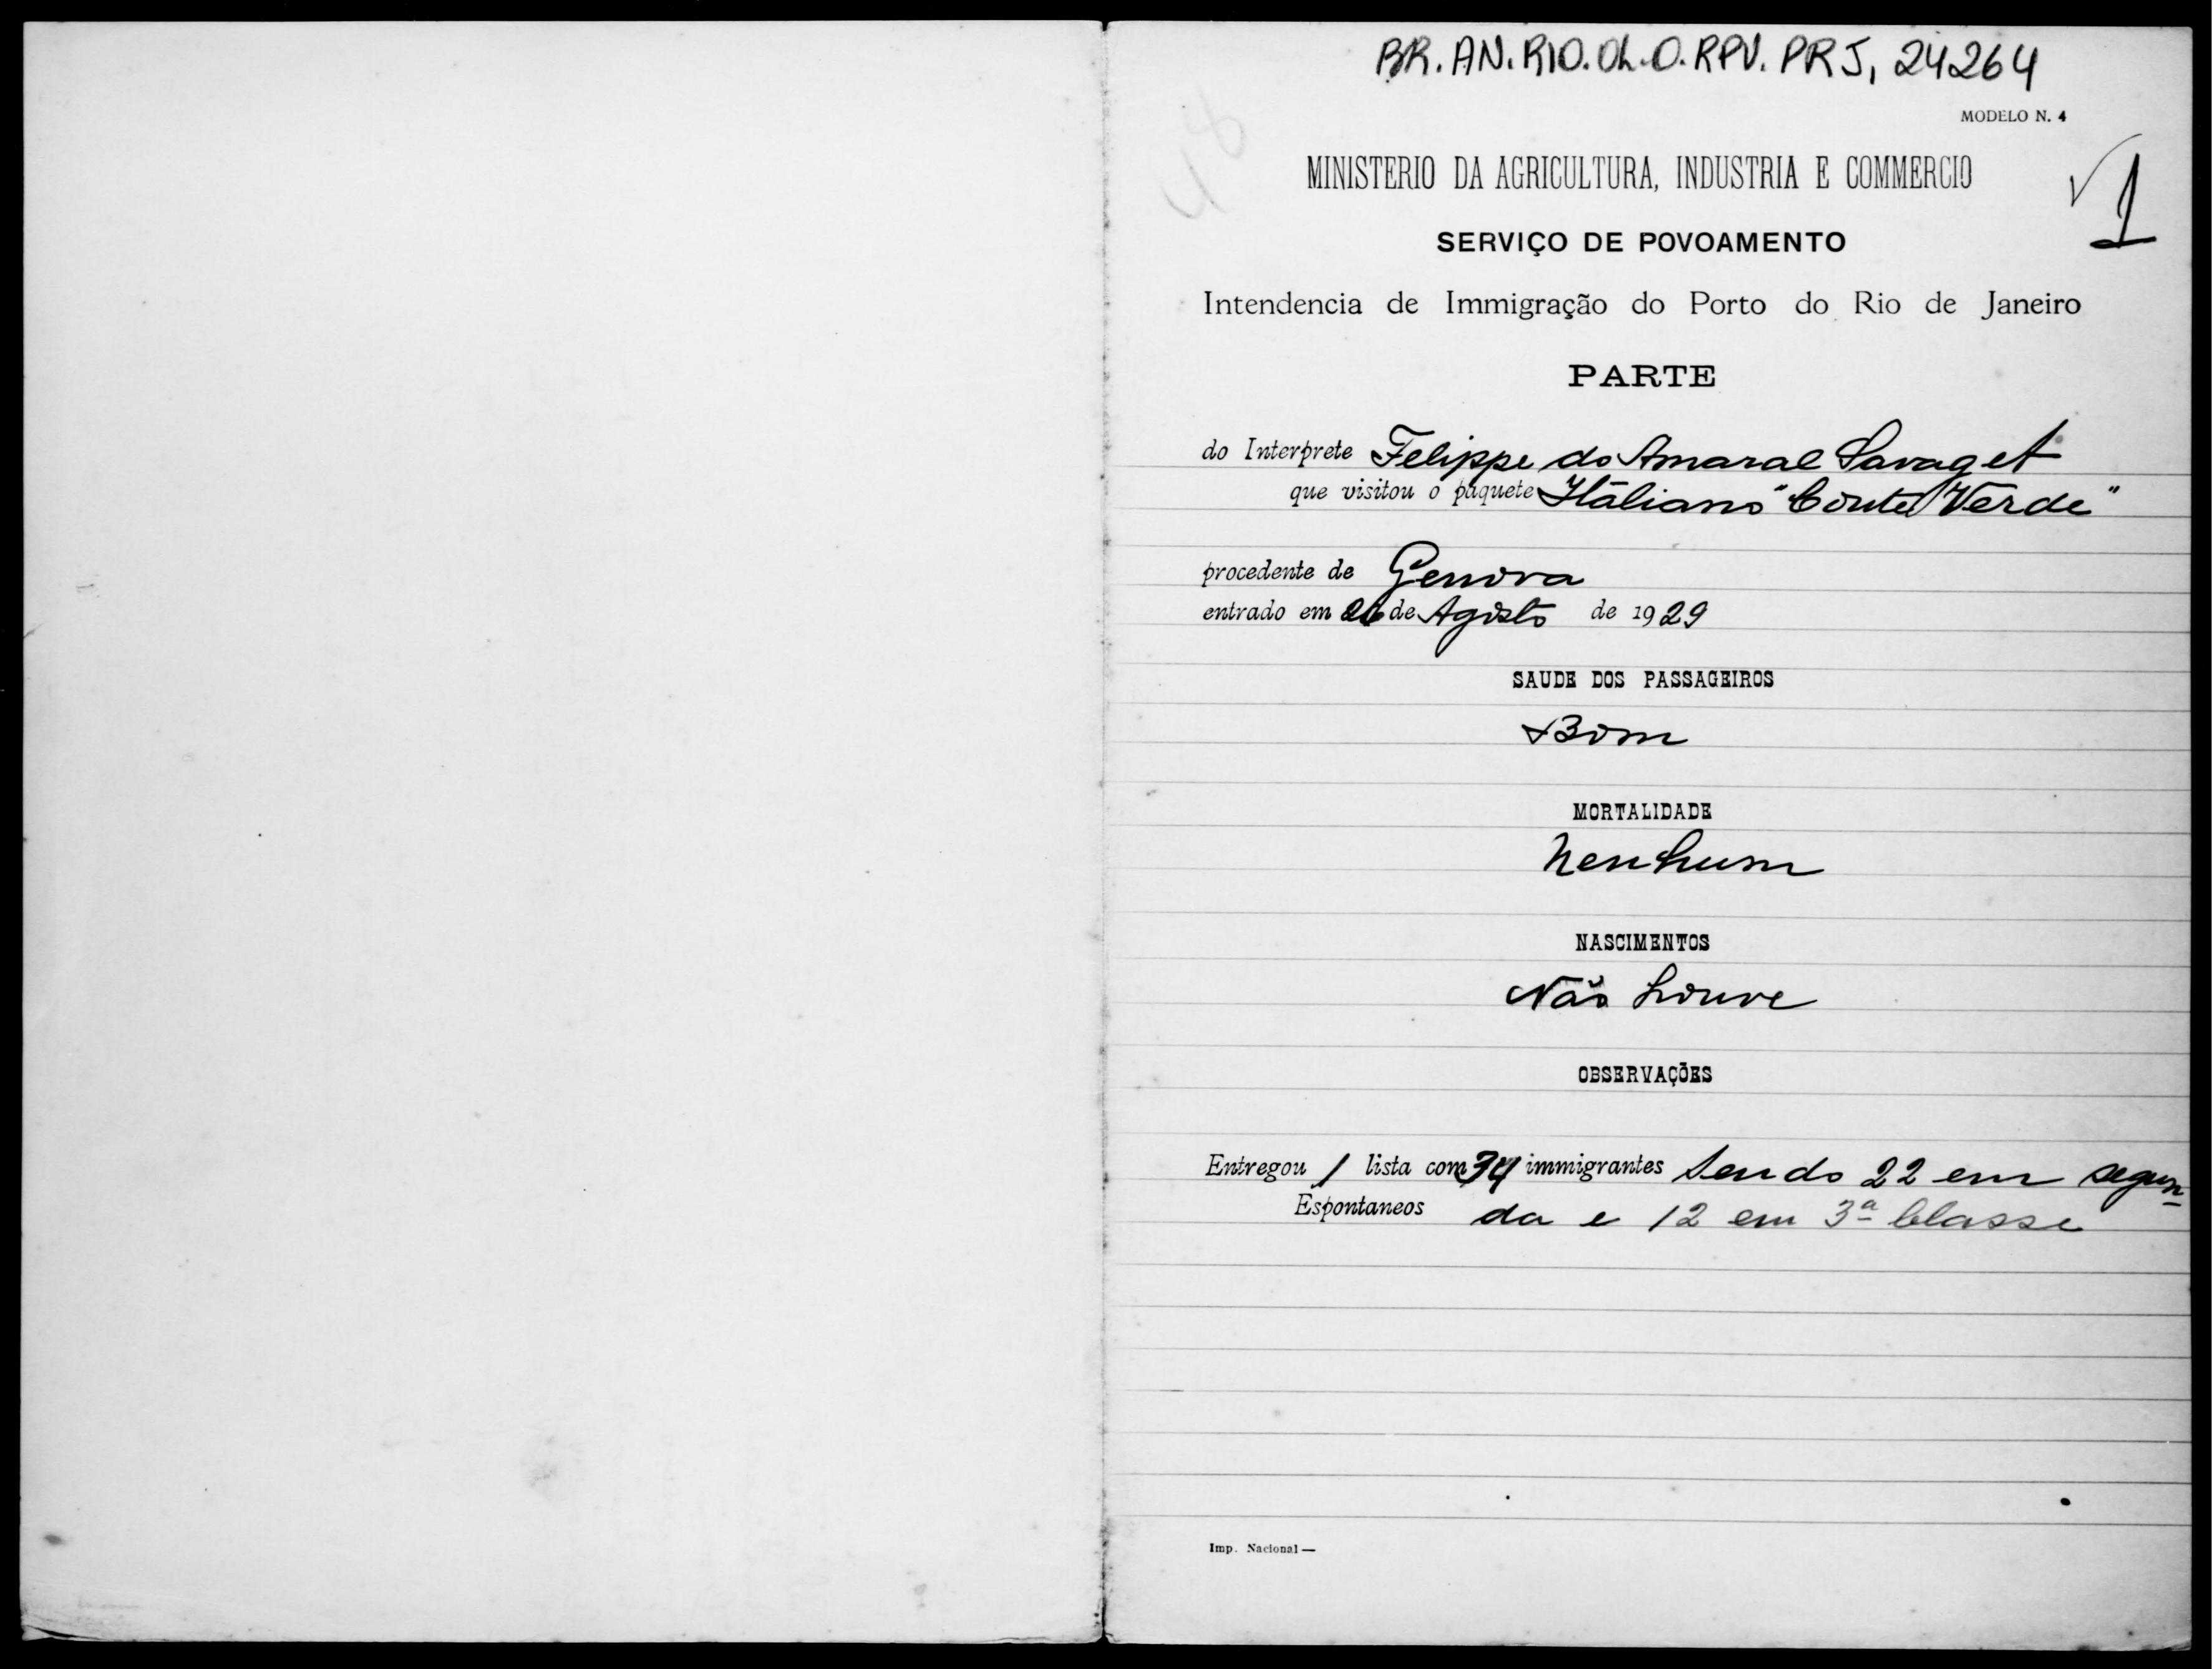 BR.AN.RIO.OL.O.RPV.PRJ, 24264
48
MODELO N. 4
MINISTERIO DA AGRICULTURA, INDUSTRIA E COMMERCIO
1
SERVIÇO DE POVOAMENTO
Intendencia de Immigração do Porto do Rio de Janeiro
PARTE
do Interprete Felippe do Amaral Savaget
que visitou o paquete Italiano "Conte Verde"
procedente de Genova
entrado em de Agosto de 1929
SAUDE DOS PASSAGEIROS
Bom
MORTALIDADE
Nenhum
NASCIMENTOS
Não houve
OBSERVAÇÕES
Entregou 1 lista com 34 immigrantes sendo 22 em segun-
Espontaneos da e 12 em 3ª Classe
Imp. Nacional —